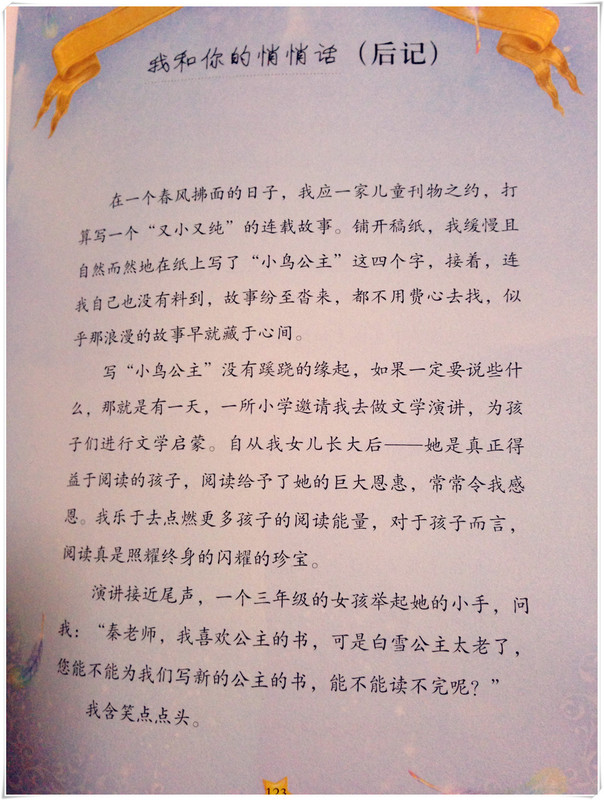 我和你的悄悄话（后记）
在一个春风拂面的日子，我应一家儿童刊物之约，打
算写一个“又小又纯”的连载故事。铺开稿纸，我缓慢且
自然而然地在纸上写了“小鸟公主”这四个字，接着，连
我自己也没有料到，故事纷至沓来，都不用费心去找，似
乎那浪漫的故事早就藏于心间。
写“小鸟公主”没有蹊跷的缘起，如果一定要说些什
么，那就是有一天，一所小学邀请我去做文学演讲，为孩
子们进行文学启蒙。自从我女儿长大后——她是真正得
益于阅读的孩子，阅读给予了她的巨大恩惠，常常令我感
恩。我乐于去点燃更多孩子的阅读能量，对于孩子而言，
阅读真是照耀终身的闪耀的珍宝。
演讲接近尾声，一个三年级的女孩举起她的小手，问
我：“秦老师，我喜欢公主的书，可是白雪公主太老了，
您能不能为我们写新的公主的书，能不能读不完呢？”
我含笑点点头。
123